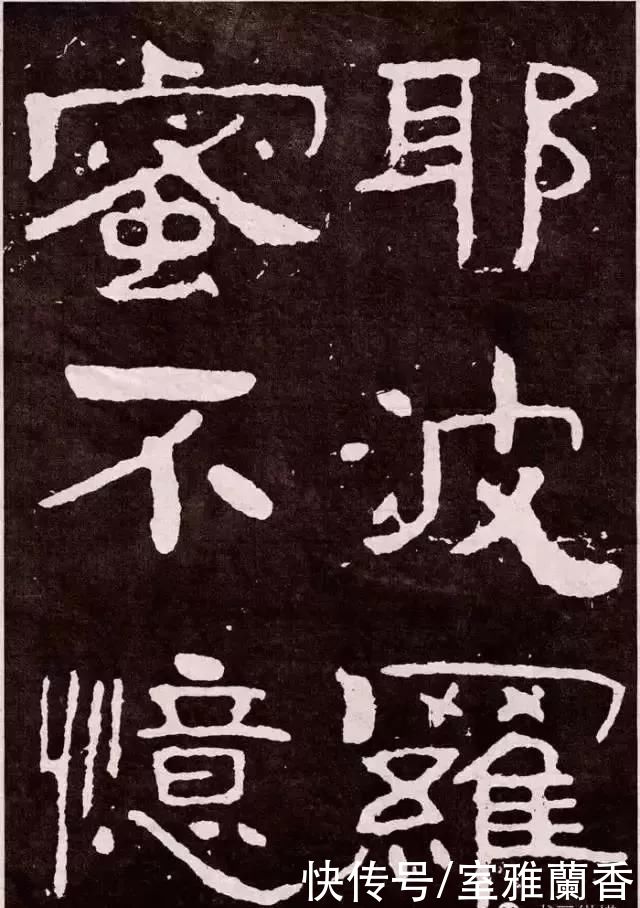 耶波羅
蜜不憶
快传号/室雅蘭香